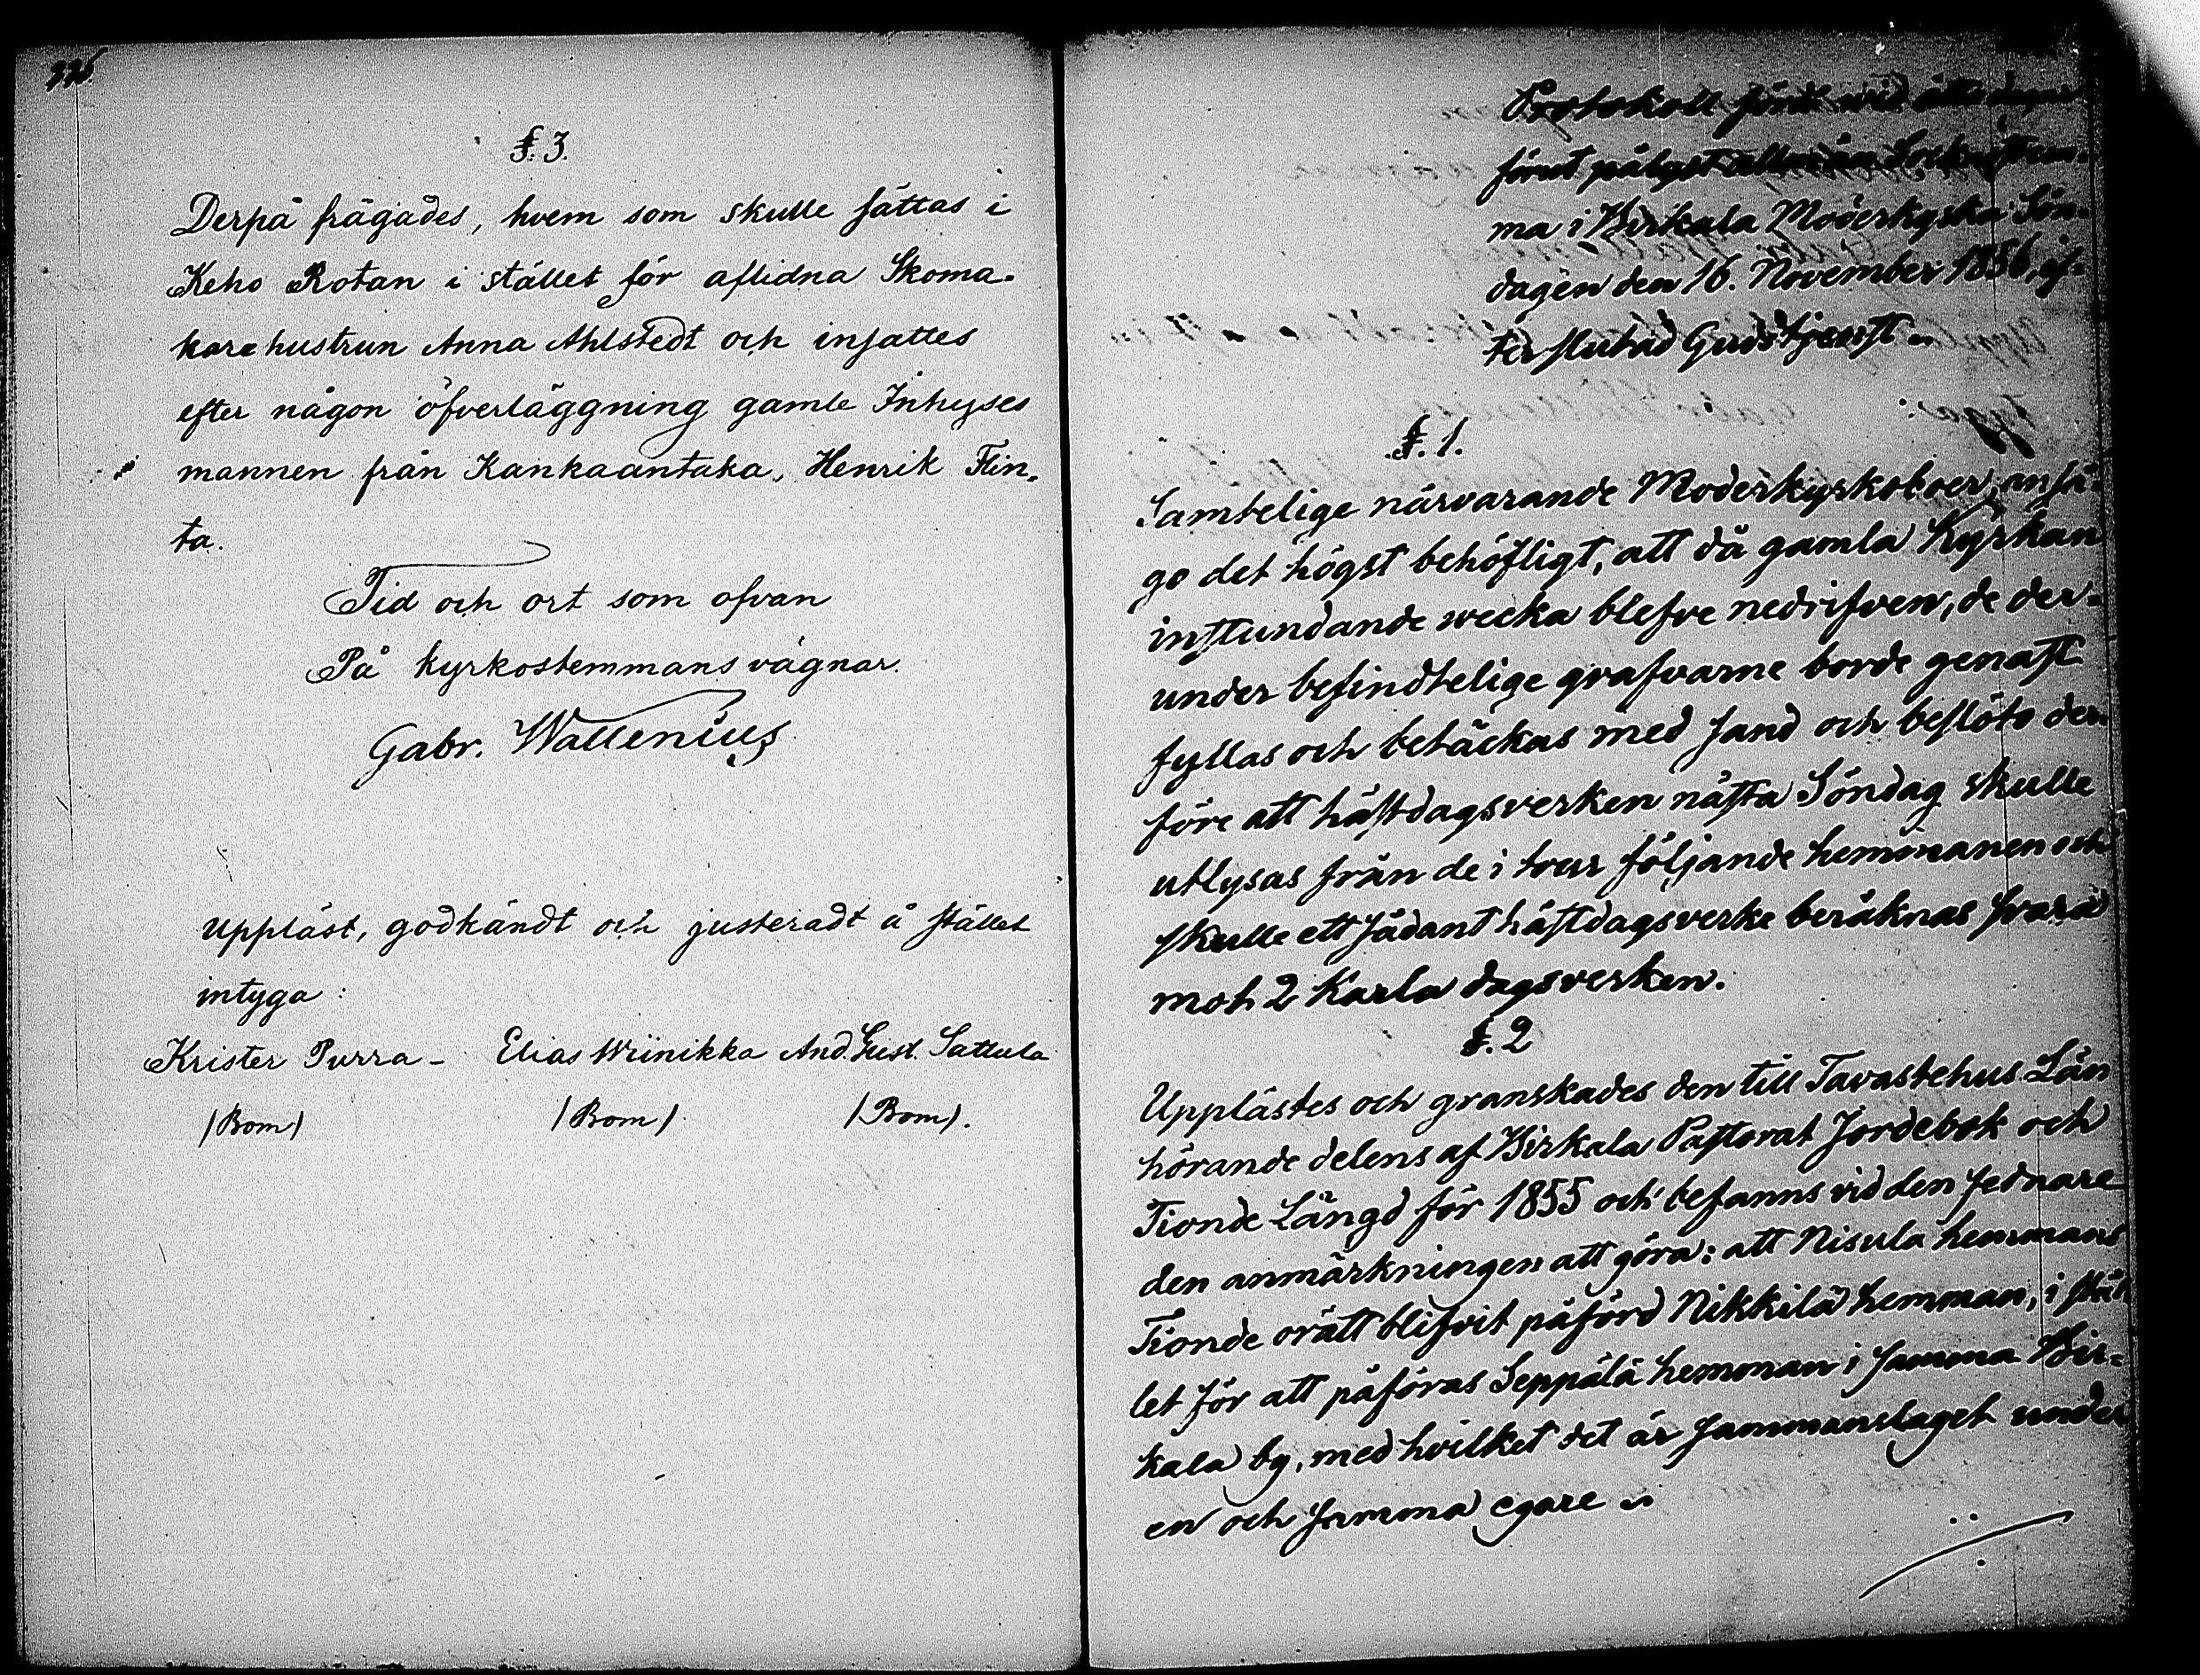 §. 3.
Derpå frågades, hvem som skulle sättas i
Keho Rotan i stället för aflidna Skoma-
karehustrun Anna Ahlstedt och insattes
efter någon öfverläggning gamle Inhyses
mannen från Kankaantaka, Henrik Flin-
ta.
Tid och ort som ofvan
På kyrkostemmans vägnar.
Gabr. Wallenius
Uppläst, godkändt och justeradt å stället
intyga:
Krister Purra - Elias Wiinikka And. Gust. Sattula
/Bom/ /Bom/. /Bom/.
Protokoll fördt vid åtta dagar
förut pålyst allmän Sockenstem-
ma i Birkala Moderkyrka Sön-
dagen den 16. November 1856, ef-
ter slutad Gudstjenst.
§. 1.
Samtelige närvarande Moderkyrkoboer, anså-
go det högst behöfligt, att då gamla Kyrkan
instundande wecka blefve nedrifven, de der-
under befindtelige grafvarne borde genast
fyllas och betäckas med sand och beslöts der-
före att hästdagsverken nästa Söndag skulle
utlysas från de i tour följande hemmanen och
skulle ett sådant hästdagsverke beräknas svara
mot 2 Karla dagsverken.
§. 2
Upplästes och granskades den till Tavastehus Län
hörande delens af Birkala Pastorat Jordebok och
Tionde Längd för 1855 och befanns vid den sednare
den anmärkningen att göra: att Nisula hemmans
Tionde orätt blifvit påförd Nikkilä hemman, i stäl-
let för att påföras Seppälä hemman i samma Bir-
kala by, med hvilket det är sammanslaget under
en och samma egare